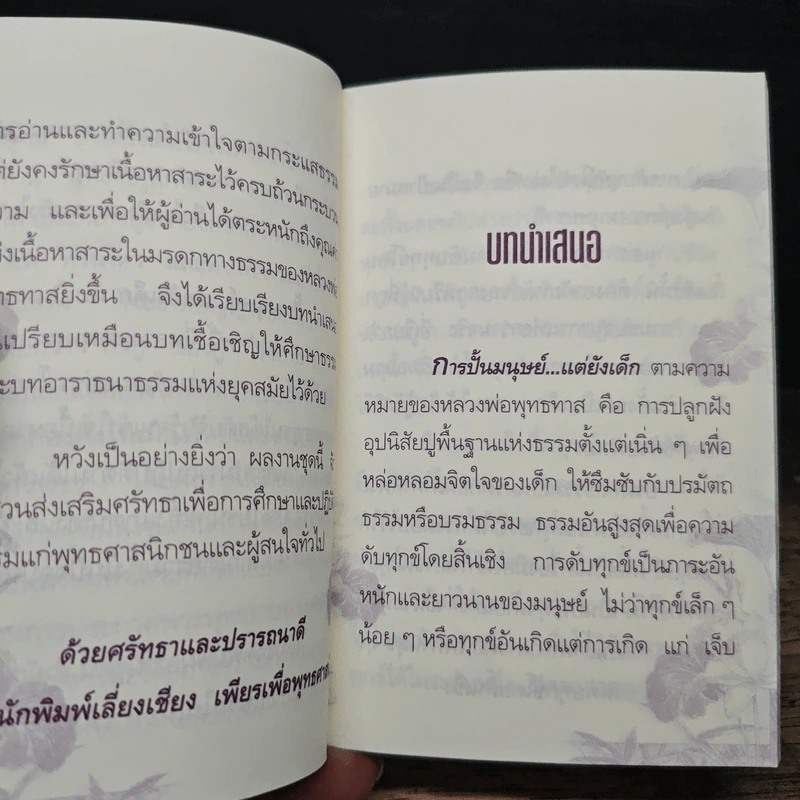 รอ่านและทำความเข้าใจตามกระแสธรรม
ยังคงรักษาเนื้อหาสาระไว้ครบถ้วนกระบวน
วาม และเพื่อให้ผู้อ่านได้ตระหนักถึงคุณค่า
เนื้อหาสาระในมรดกทางธรรมของหลวงพ่อ
ทธทาสยิ่งขึ้น จึงได้เรียบเรียงบทนำเสนอ
เปรียบเหมือนบทเชื้อเชิญให้ศึกษาธรรม
ะบทอาราธนาธรรมแห่งยุคสมัยไว้ด้วย
หวังเป็นอย่างยิ่งว่า ผลงานชุดนี้
วนส่งเสริมศรัทธาเพื่อการศึกษาและปฏิบัติ
รมแก่พุทธศาสนิกชนและผู้สนใจทั่วไป
ด้วยศรัทธาและปรารถนาดี
นักพิมพ์เลี่ยงเชียง เพียรเพื่อพุทธศาส
บทนำเสนอ
การปั้นมนุษย์...แต่ยังเด็ก ตามความ
หมายของหลวงพ่อพุทธทาส คือ การปลูกฝัง
อุปนิสัยปูพื้นฐานแห่งธรรมตั้งแต่เนิ่น ๆ เพื่อ
หล่อหลอมจิตใจของเด็ก ให้ซึมซับกับปรมัตถ
ธรรมหรือบรมธรรม ธรรมอันสูงสุดเพื่อความ
ดับทุกข์โดยสิ้นเชิง การดับทุกข์เป็นภาระอัน
หนักและยาวนานของมนุษย์ ไม่ว่าทุกข์เล็ก ๆ
น้อย ๆ หรือทุกข์อันเกิดแต่การเกิด แก่ เจ็บ